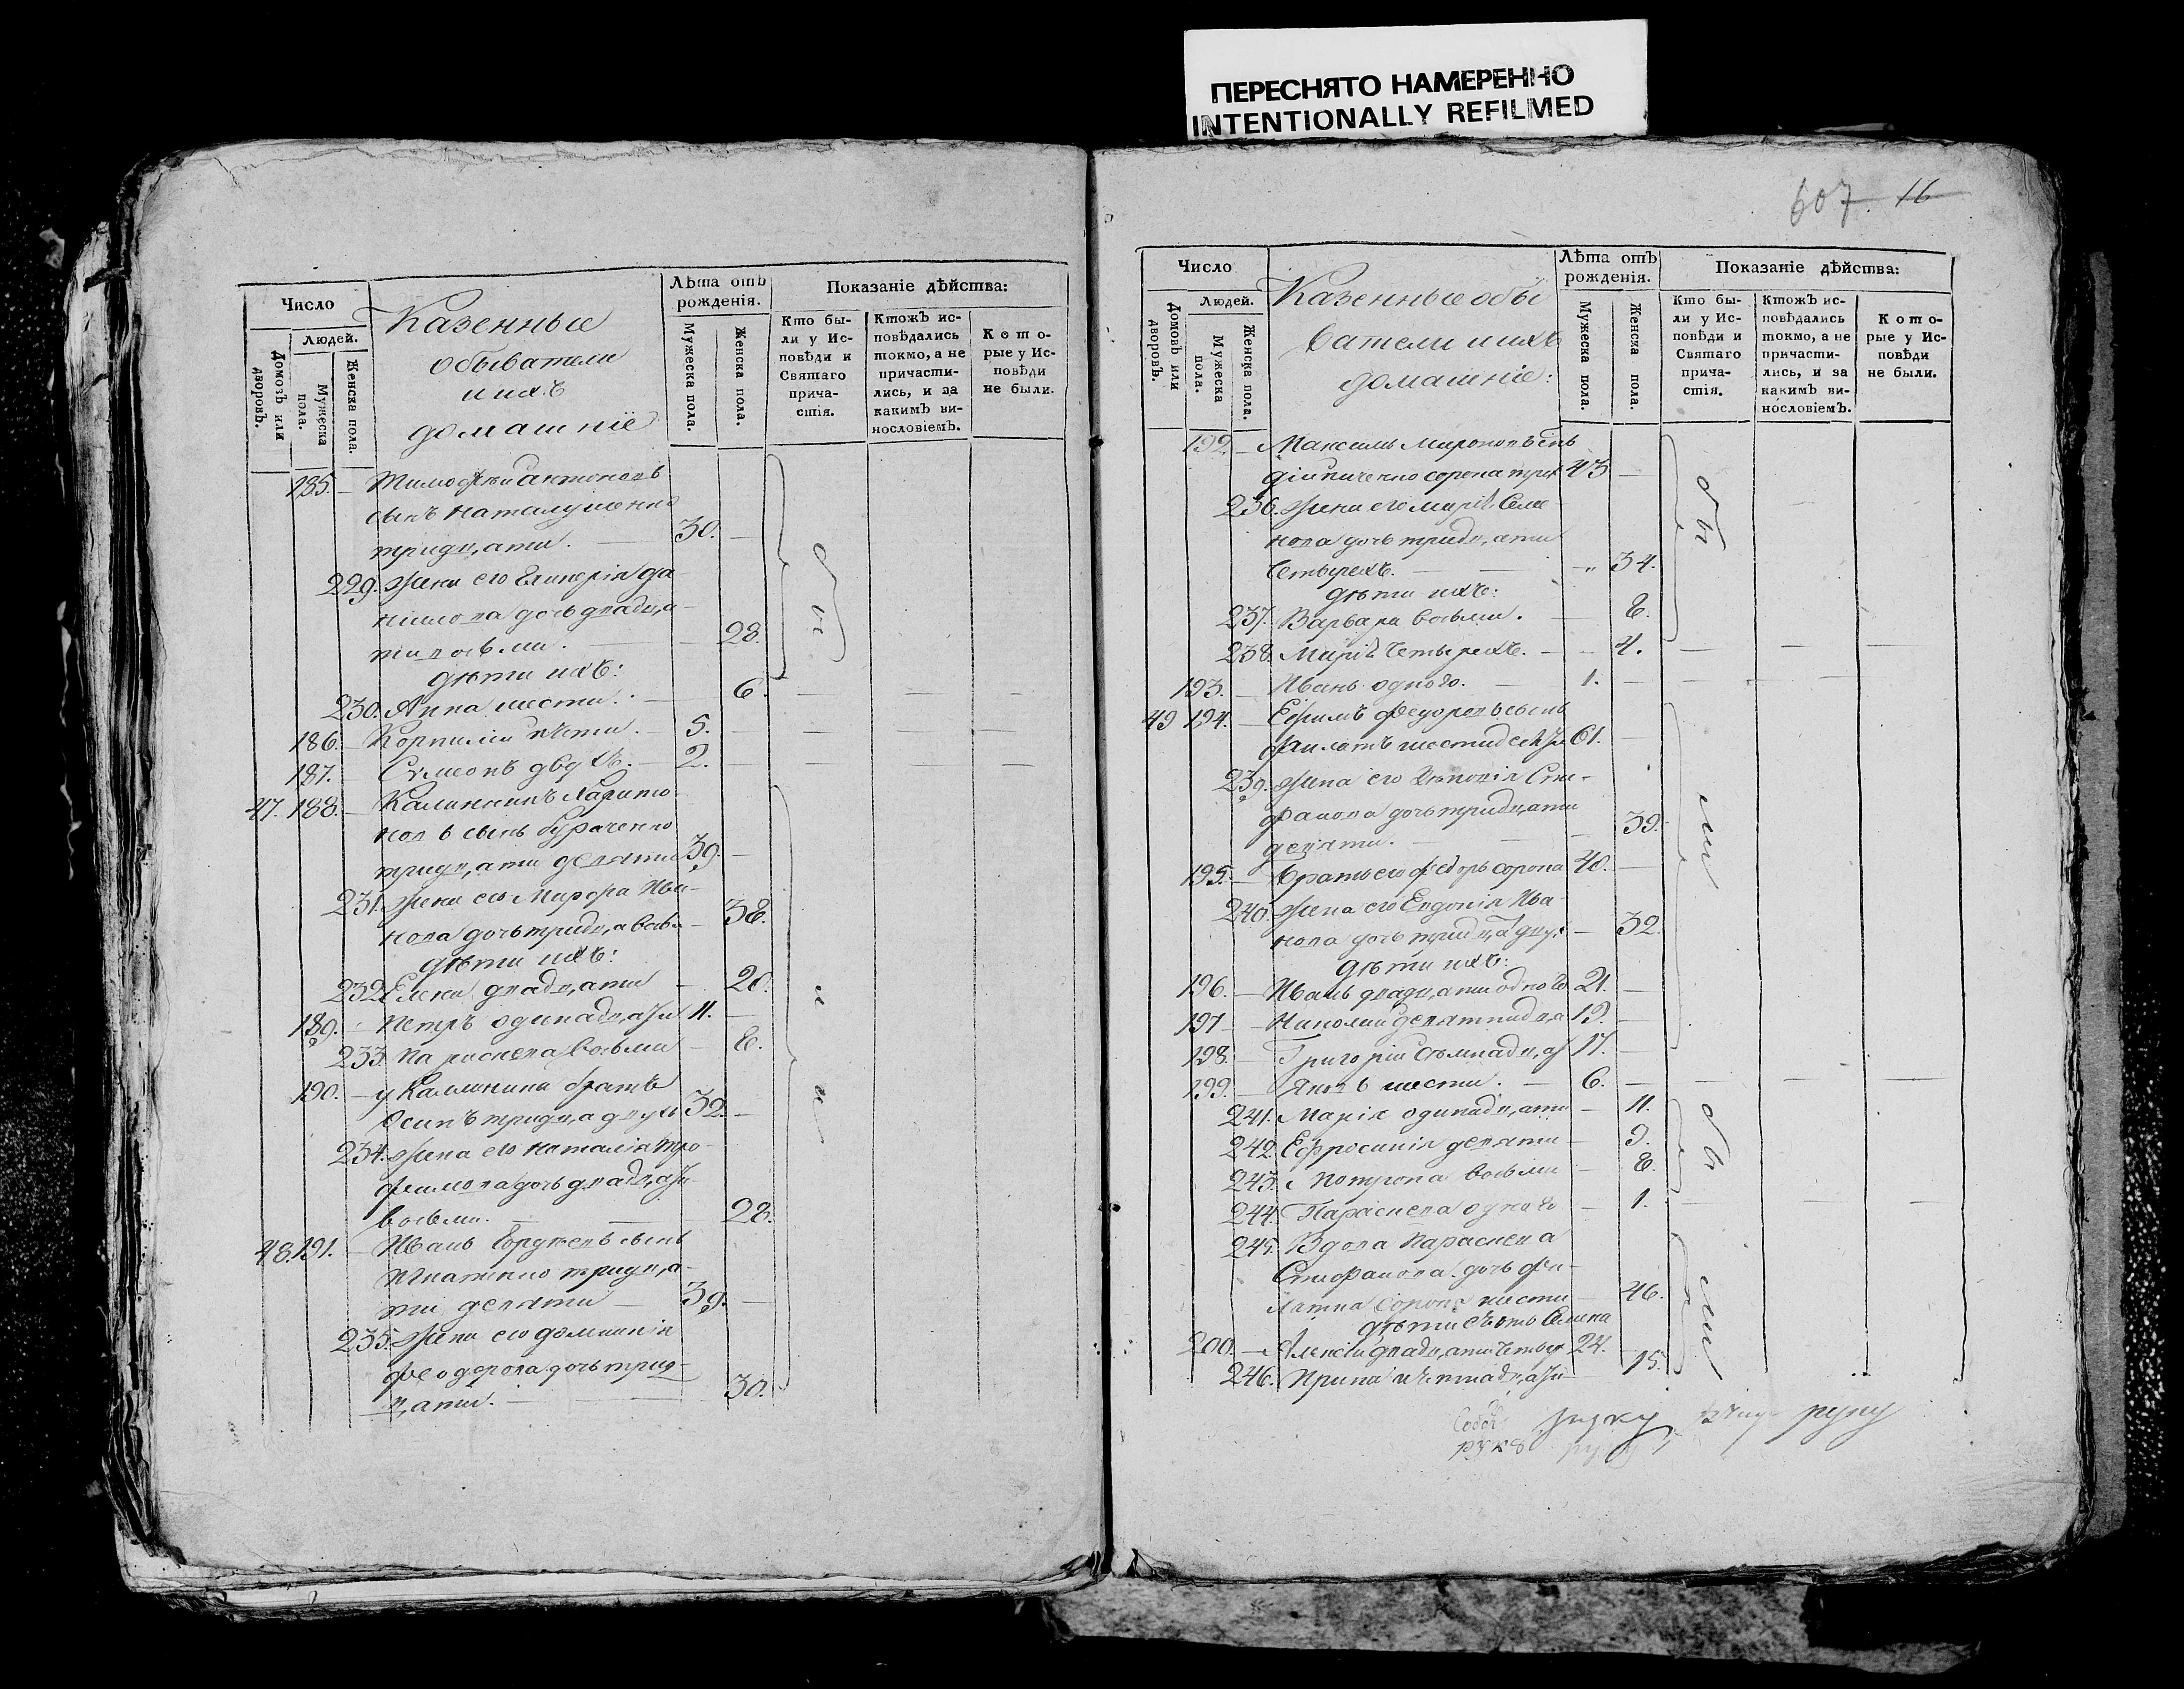 ПЕРЕСНЯТО НАМЕРЕННО
INTENTIONALLY REFILMED
607. 16
Число
Людей.
Домовъ или дворовъ.
Мужеска пола.
Женска пола.
Казенные
обыватели
и ихъ
домашніе
Лѣта отъ рожденія.
Мужеска пола.
Женска пола.
Показаніе дѣйства:
Кто были у Исповѣди и Святаго причастія.
Ктожъ исповѣдались токмо, а не причастились, и за какимъ винословіемъ.
Которые у Исповѣди не были.
185. Тимофей Антоновъ
сынъ
тридцати. 30.
229. жена его Гликерія Да
нилова дочь двадца
ти восьми. 28.
дѣти ихъ:
230. Анна шести. 6.
186. Корнилій пѣти. 5.
187. Сѵмеонъ двухъ. 2.
47. 188. Калинникъ Харито
новъ сынъ Бураченко
тридцати девяти 39.
231. жена его Марфа Ива-
нова дочь тридца восьм 38.
дѣти ихъ:
232. Елена двадцати 20.
189. Петръ одинадцати 11.
233. Параскева восьми 8.
190. у Калинника братъ
Осипъ тридца двухъ 32.
234. жена его Наталія Тро-
фимова дочь двадцати
восьми. 28.
48. 191. Иванъ сынъ
Игнатенко тридца-
ти девяти 39.
235. жена его Домникія
Феодорова дочь трид-
цати. 30.
Число
Людей.
Домовъ или дворовъ.
Мужеска пола.
Женска пола.
Казенные обы
ватели и ихъ
домашніе:
Лѣта отъ рожденія.
Мужеска пола.
Женска пола.
Показаніе дѣйства:
Кто были у Исповѣди и Святаго причастія.
Ктожъ исповѣдались токмо, а не причастились, и за какимъ винословіемъ.
Которые у Исповѣди не были.
192. Максимъ Мироновъ снъ
сорока трех 43
236. жена его Марія Семе
нова дочь тридцати
четырехъ. 34.
дѣти ихъ:
237. Варвара восьми. 8.
238. Марія четырехъ. 4.
193. Иванъ одного. 1.
49 194. Ефимъ Федоровъ сынъ
Филатъ 61.
239. жена его Сте-
фанова дочь тридцати
девяти. 39.
195. братъ его Федоръ сорока 40.
240. жена его Евдокія Ива
нова дочь тридца двух 32.
дѣти ихъ:
196. Иванъ двадцати одного 21.
197 Николай девятнадца 19.
198. Григорій семнадца 17.
199. Яковъ шести. 6.
241. Марія одинадцати 11.
242. Ефросинія девяти 9.
243. Мотрона восьми 8.
244. Параскева одного 1.
245. Вдова Параскева
Стефанова дочь Фи-
латка сорока шести 46.
200. Алексій двадцати четыр 24.
246. Ирина пѣтнадцати 15.